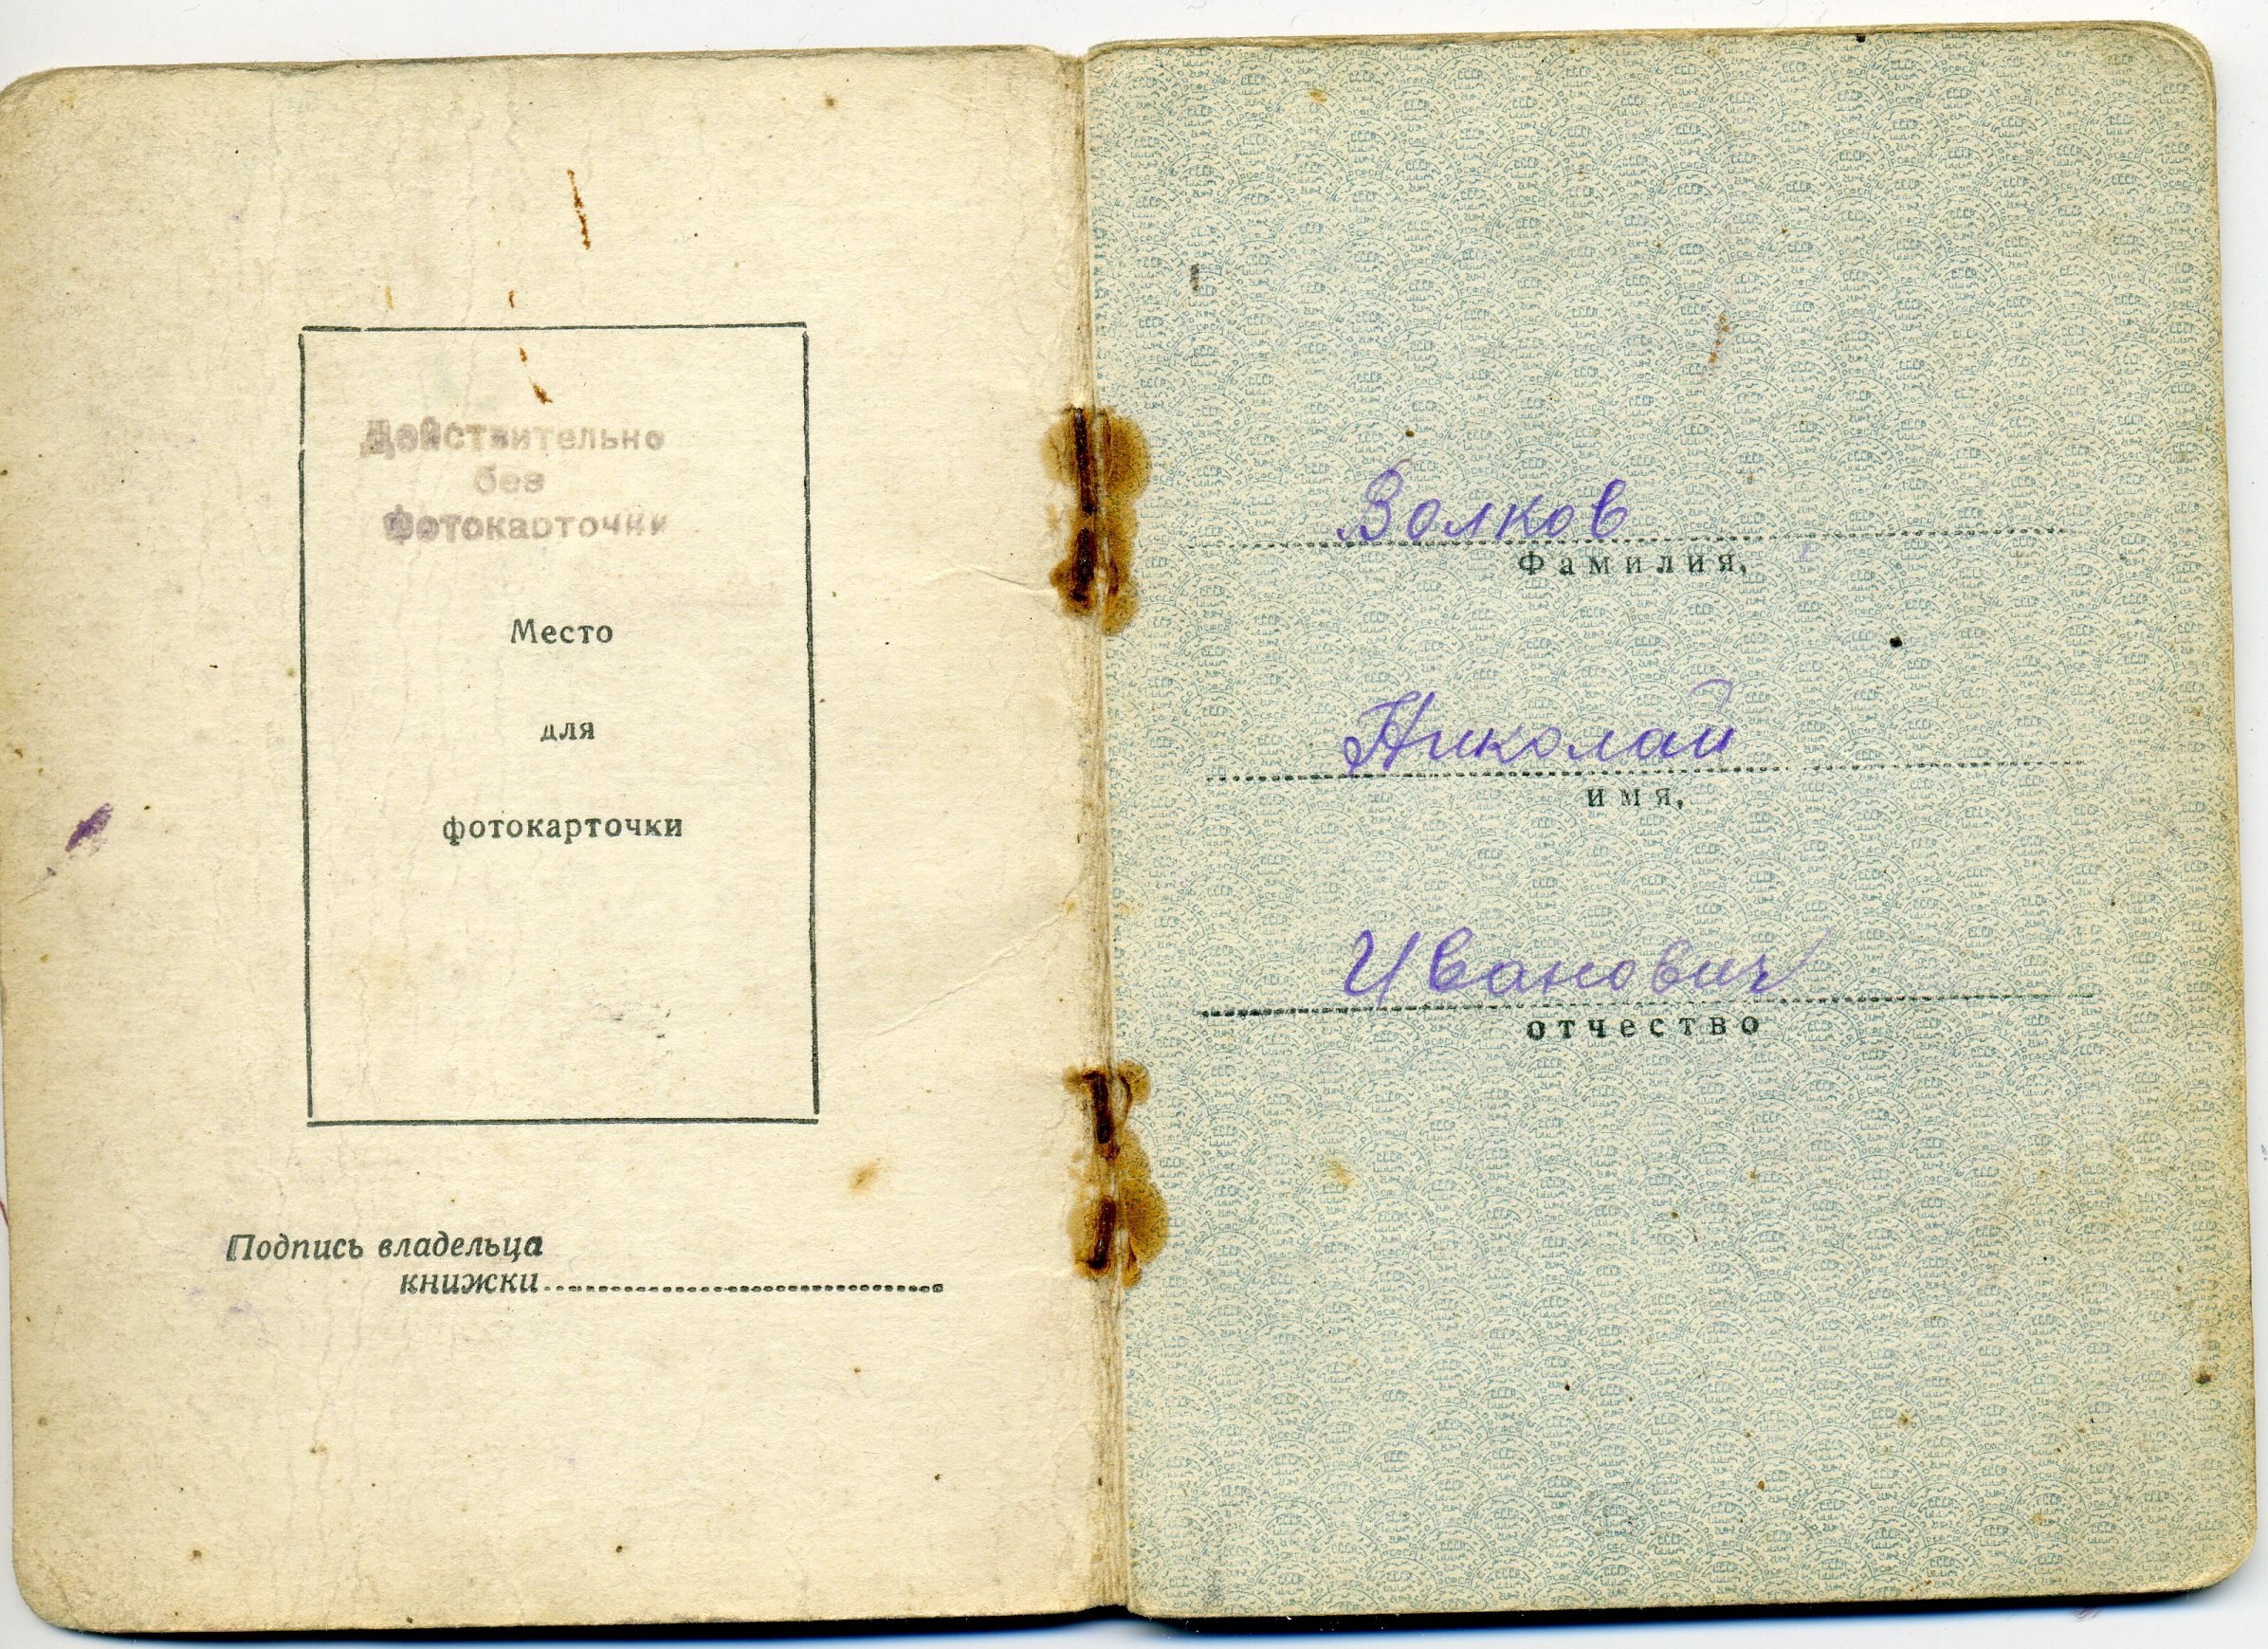 Действительно
без
фотокарточки
Место
для
фотокарточки
Подпись владельца
книжки
Волков
Фамилия,
Николай
имя,
Иванович
отчество